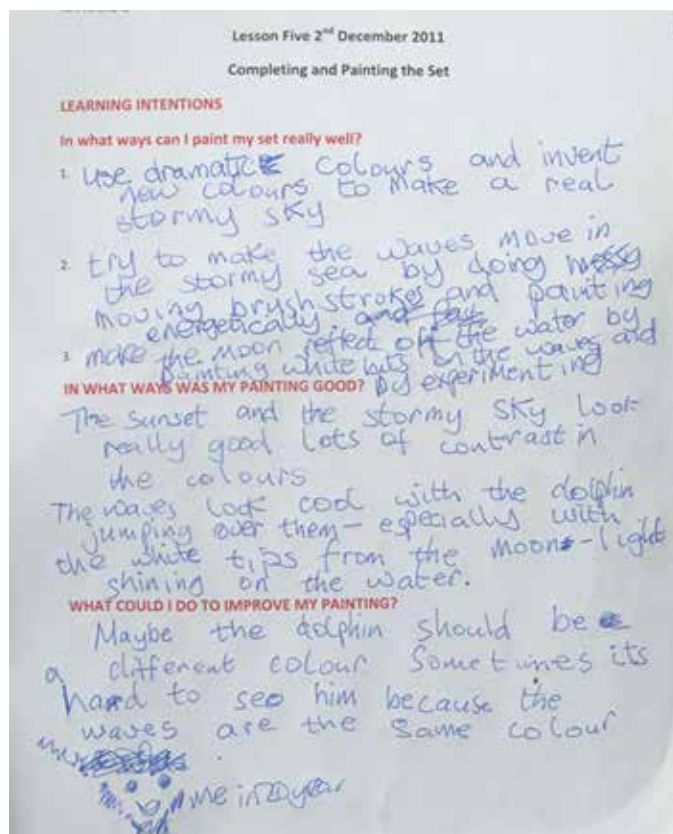 Lesson Five 2nd December 2011
Completing and Painting the Set
LEARNING INTENTIONS
In what ways can I paint my set really well?
1. use dramatic colours and invent
new colours to make a real
stormy sky
2. try to make the waves move in
the stormy sea by doing messy
moving brush strokes and painting
energetically. and
3. make the moon reflect off the water by
painting white bits in the waves and
IN WHAT WAYS WAS MY PAINTING GOOD? by experimenting
The sunset and the stormy sky look
really good lots of contrast in
the colours
The waves look cool with the dolphin
jumping over them - especially with
the white tips from the moon-light
shining on the water.
WHAT COULD I DO TO IMPROVE MY PAINTING?
Maybe the dolphin should be
a different colour Sometimes its
hard to see him because the
waves are the same colour
me in 20 year